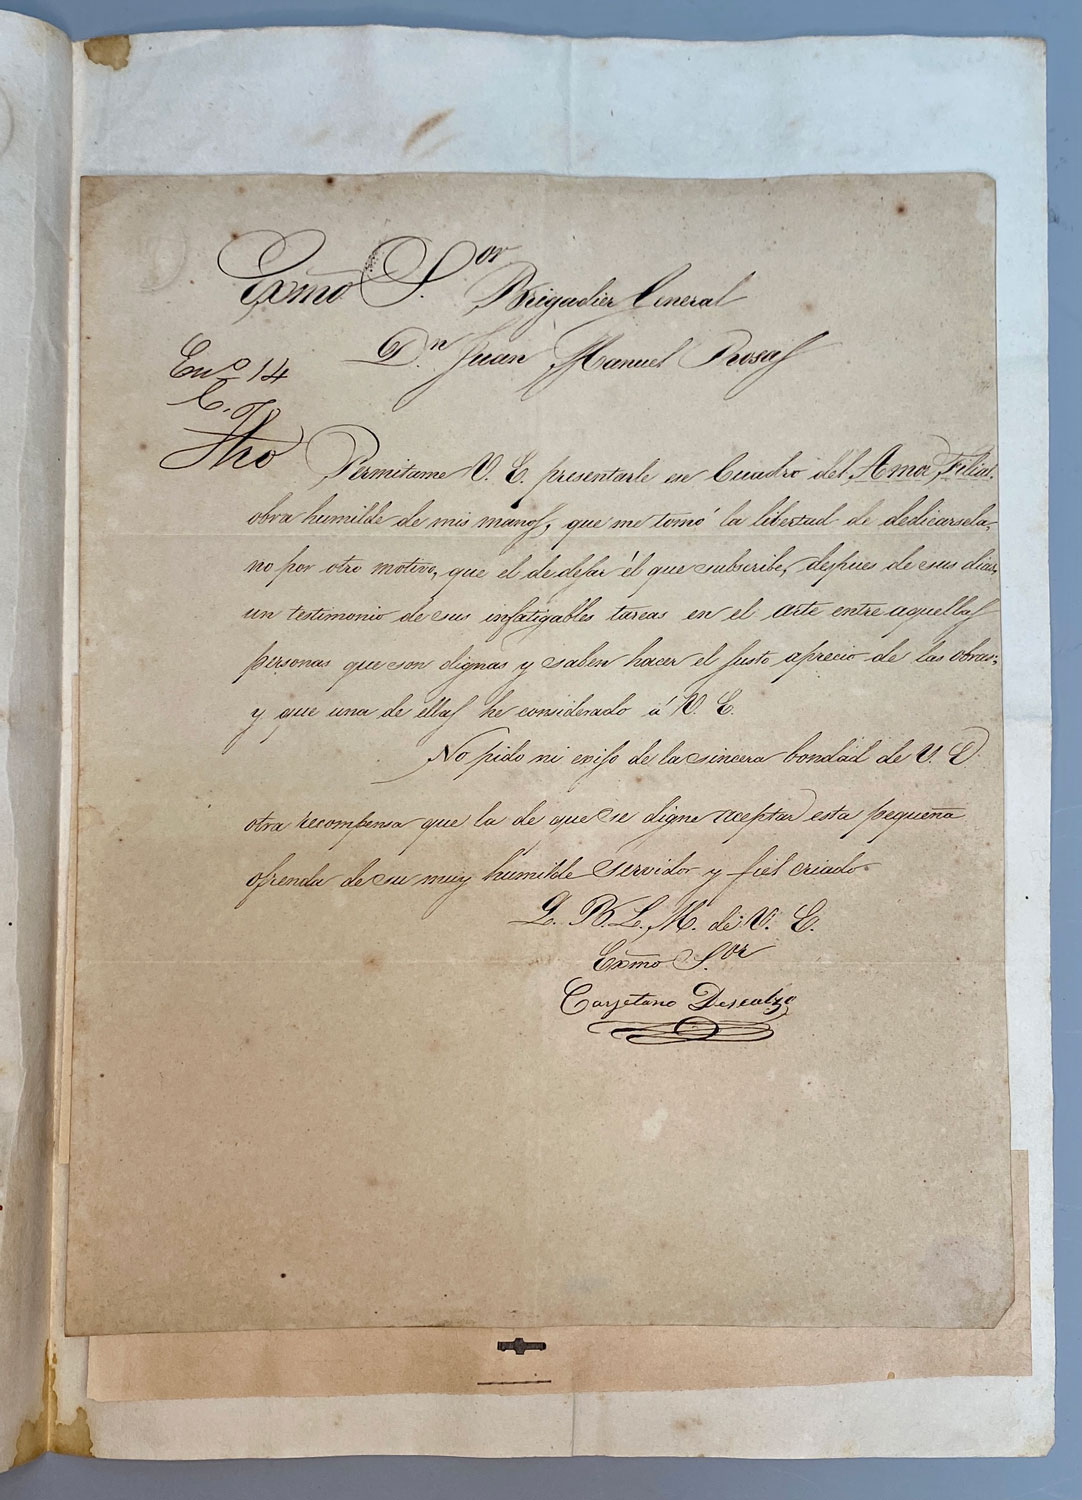 Exmo S.or Brigadier General
Dn. Juan Manuel Rosas
En.o 14
C.
Permitame V. E. presentarle un Cuadro del Amor Filial,
obra humilde de mis manos, que me tomó la libertad de dedicarsela,
no por otro motivo, que el de dejar él que subscribe, despues de sus dias,
un testimonio de sus infatigables tareas en el arte entre aquellas
personas que son dignas y saben hacer el justo aprecio de las obras;
y que una de ellas he considerado á V. E.
No pido ni exijo de la sincera bondad de V. E.
otra recompensa que la de que se digne aceptar esta pequeña
ofrenda de su muy humilde servidor y fiel criado
Q. B. L. M. de V. E.
Exmo S.or
Cayetano Descalzo